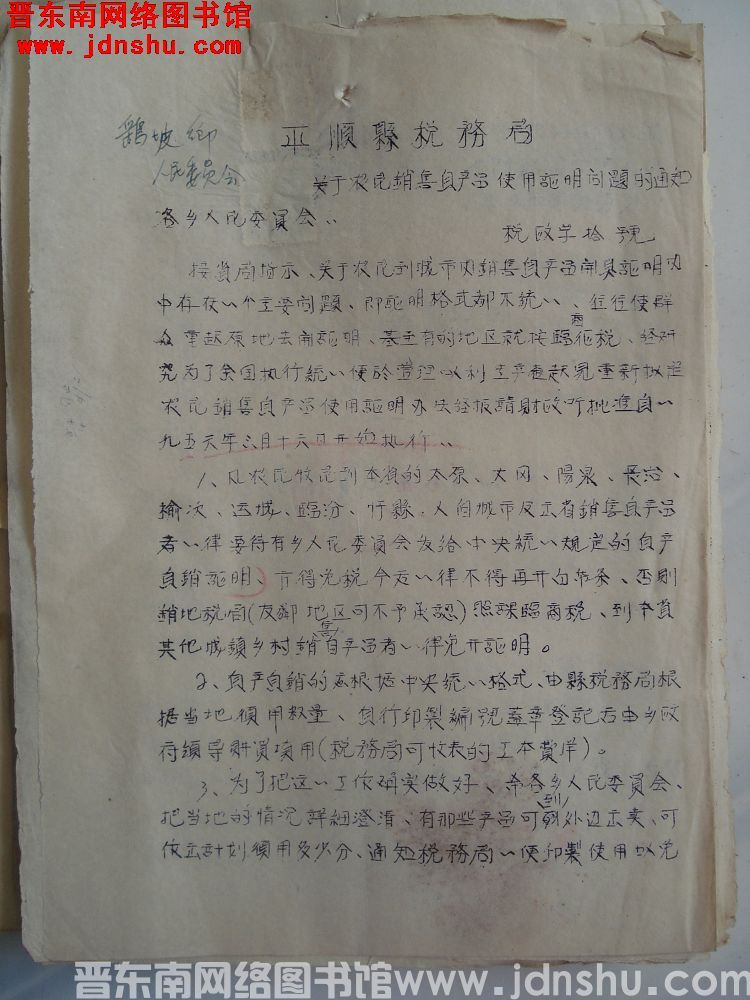 晋东南网络图书馆
www.jdnshu.com
鹞坡鄉
人民委員会
平順縣税務局
关于农民銷售自产品使用証明问題的通知
各乡人民委員会：
税政字拾號
接省局指示、关于农民到城市内銷售自产品開具証明内
中存在一个主要问題、即証明格式都不統一、往往使群
众拿起原地去開証明、甚至有的地区就按臨商征税、经研
究为了全国执行統一便於管理以利生产起見重新拟定
农民銷售自产品使用証明办法经报請財政听批准自一
九五六年三月十六日开始执行。
1、凡农民牧民到本省的太原、大同、陽泉、長治、
榆次、运城、臨汾、忻縣、八个城市及出省銷售自产品
者一律要持有乡人民委員会发给中央統一規定的自产
自銷証明、方得免税今后一律不得再开白条、否則
銷地税局(友鄰地区可不予承認)照課臨商税、到本省
其他城鎮乡村銷售自产品者一律免开証明。
2、自产自銷的是根据中央統一格式、由縣税務局根
据当地須用数量、自行印製編號蓋章登記后由乡政
府領导財粮員领用(税務局可代表的工本費)。
3、为了把这一工作确实做好、希各乡人民委員会、
把当地的情况詳細澄清、有那些产品可到外边出卖、可
作出計划須用多少分、通知税務局以便印製使用以免
晋东南网络图书馆www.jdnshu.com